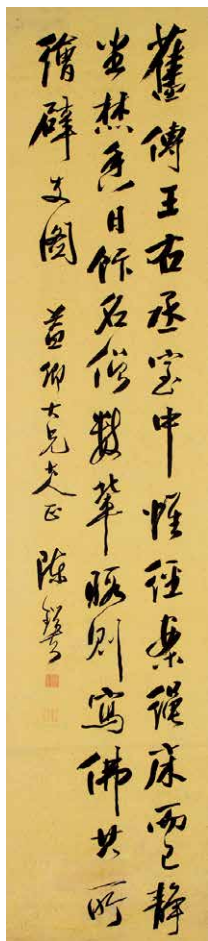 舊傳王右丞室中惟經案繩床而已靜
坐焚香日飰名僧數輩暇則寫佛其所
繪辟支圖 益卿大兄大人正 陳鑾